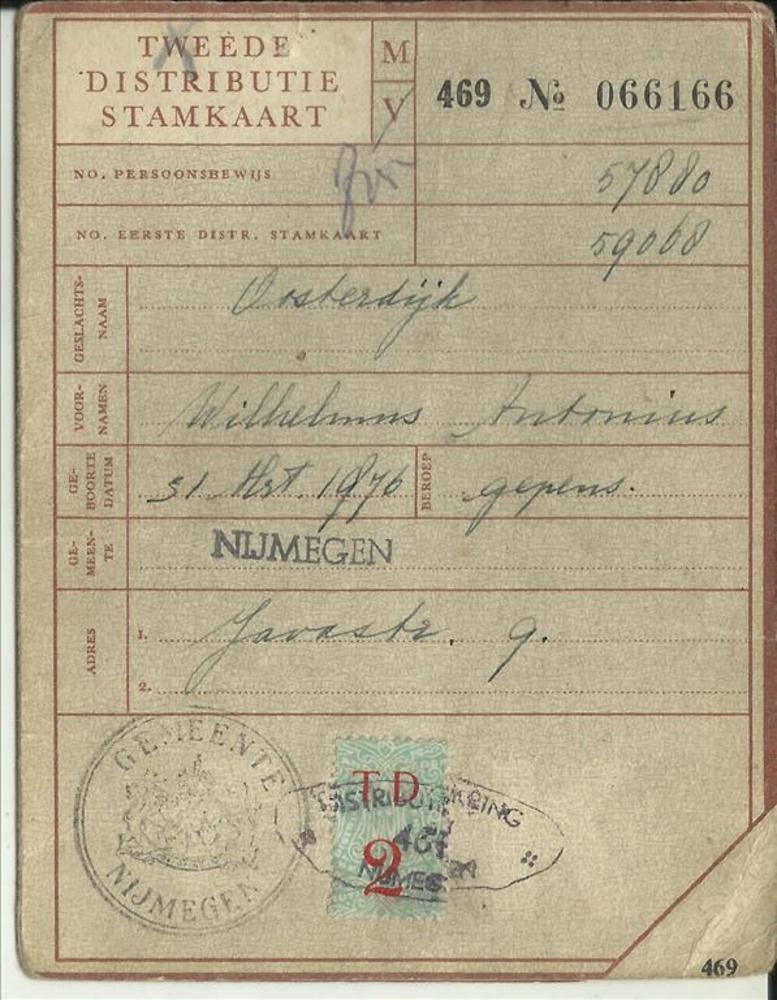 TWEEDE
DISTRIBUTIE
STAMKAART
M
V
469 No 066166
NO. PERSOONSBEWIJS 57880
NO. EERSTE DISTR. STAMKAART 59068
GESLACHTS-
NAAM
Oosterdijk
VOOR-
NAMEN
Wilhelmus Antonius
GE-
BOORTE
DATUM
31 Mrt. 1876
BEROEP
gepens.
GE-
MEEN-
TE
NIJMEGEN
ADRES
1. Javastr. 9.
2.
GEMEENTE
NIJMEGEN
TD
2
NIJMEGEN
469